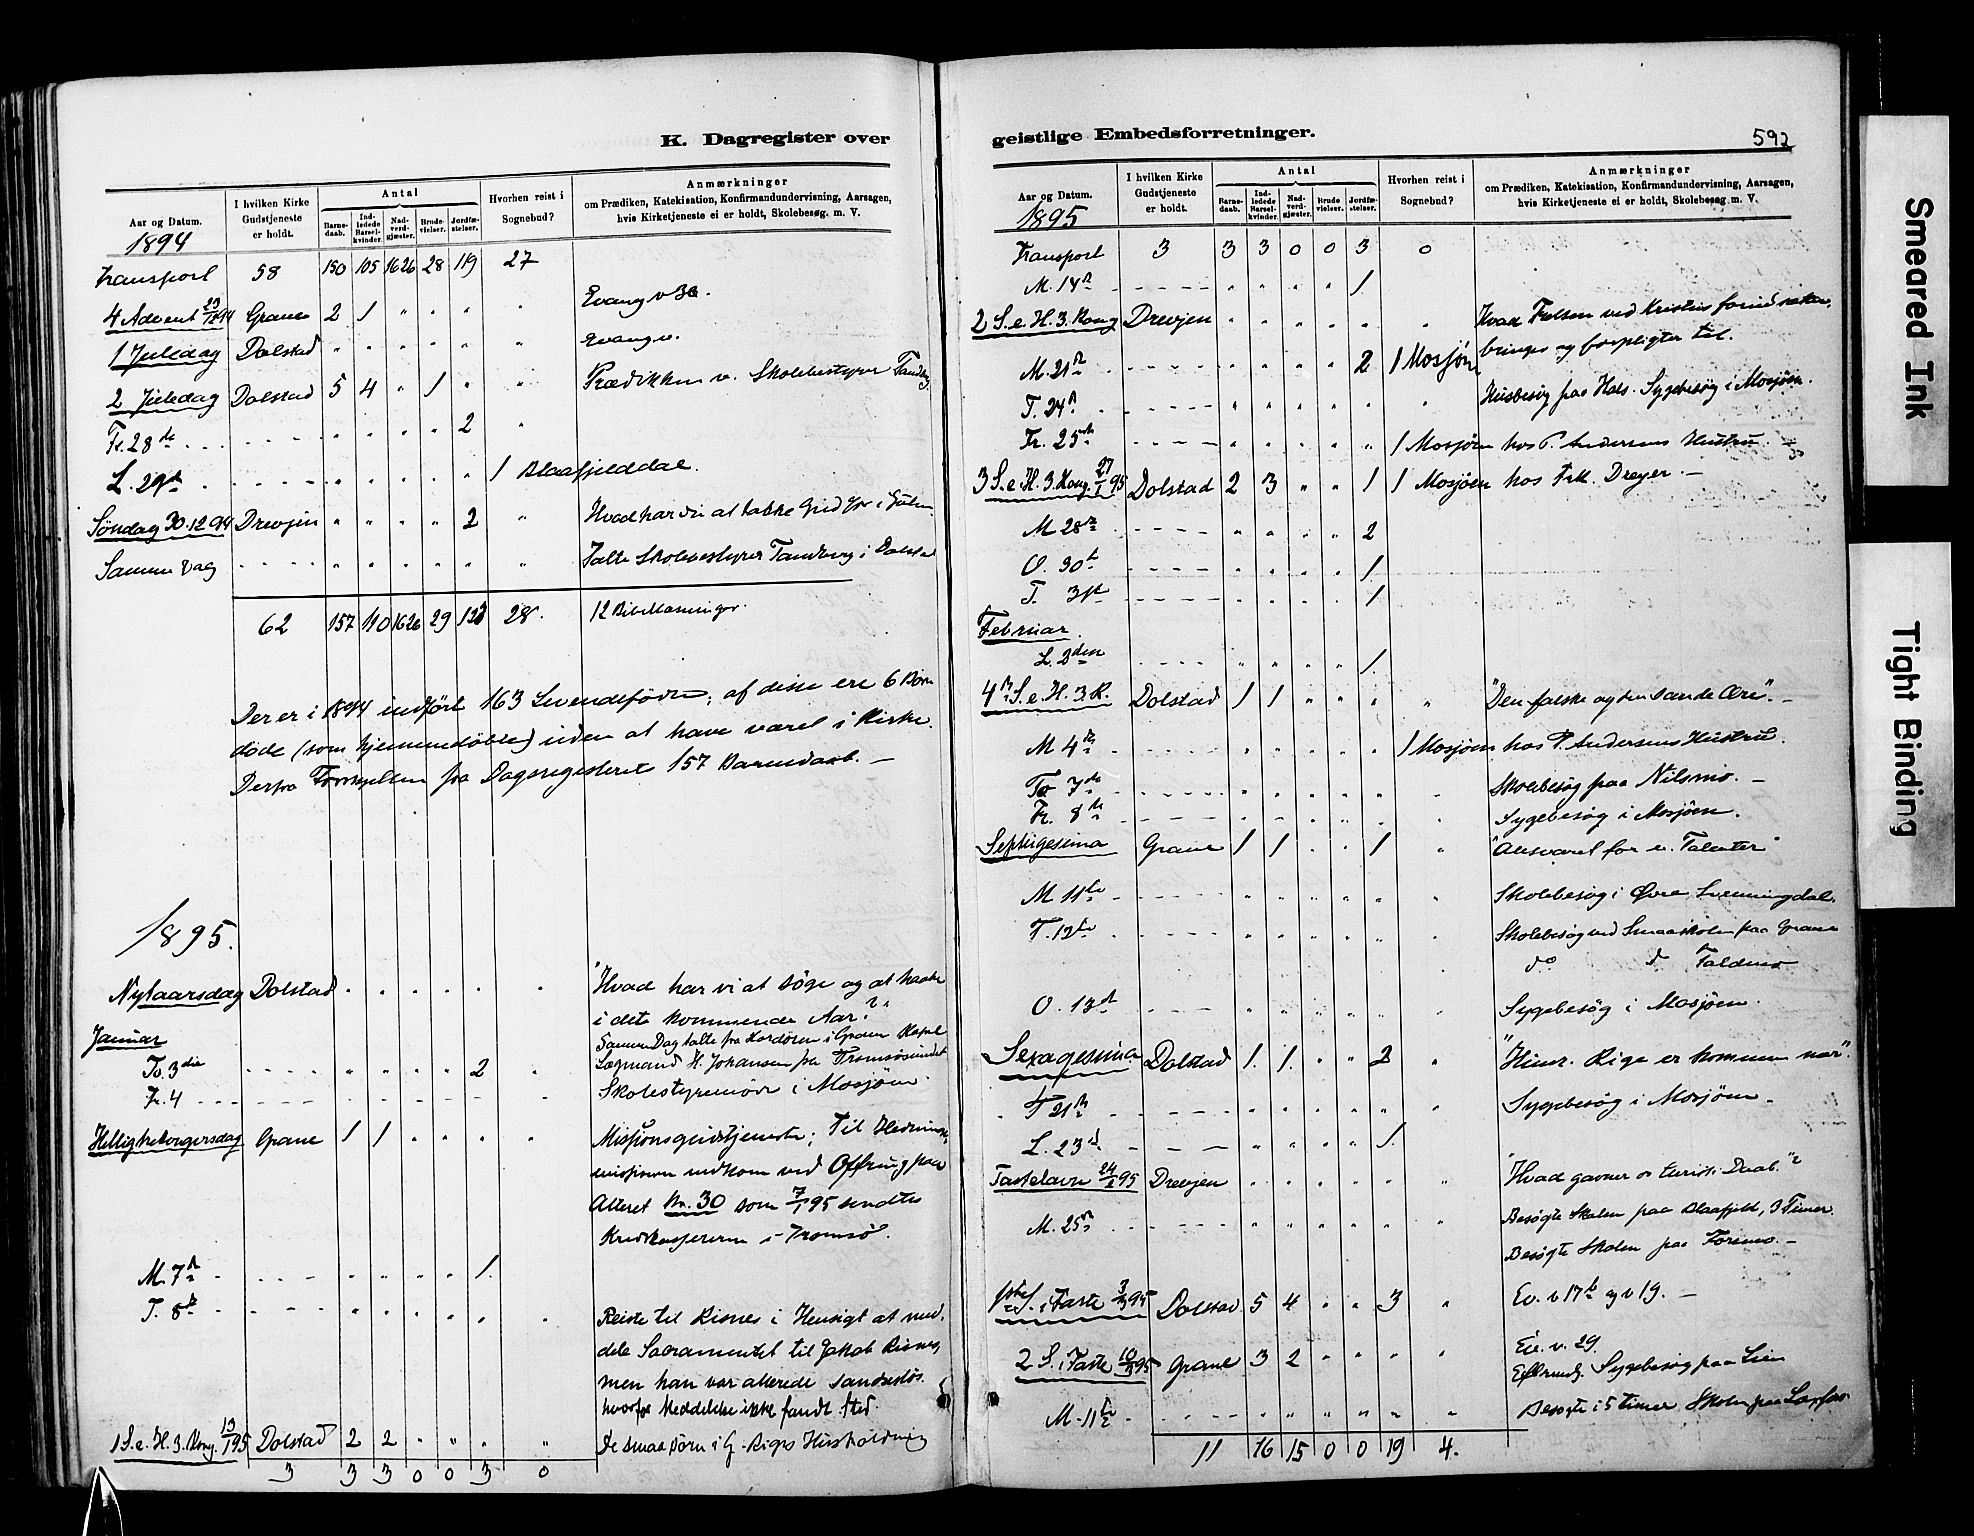 K. Dagregister over
Aar og Datum.
I hvilken Kirke Gudstjeneste er holdt.
Antal
Barnedaab.
Indledede Barselkvinder.
Nadverdgjæster.
Brudevielser.
Jordfæstelser.
Hvorhen reist i Sognebud?
Anmærkninger
om Prædiken, Katekisation, Konfirmandundervisning, Aarsagen,
hvis Kirketjeneste ei er holdt, Skolebesøg. m. V.
1894
Transport 58 150 105 1626 28 119 27
4 Advent 23/12 94 Grane 2 1 " " " " Evang v 36.
1 Juledag Dolstad " " " " " " Evang.
2 Juledag Dolstad 5 4 " 1 " " Prædikken v. Skolebestyrer Tandberg
Fr. 28de - - - - " " " " 2 "
L. 29de - - - - " " " " " 1 Blaafjelddal.
Søndag 30.12.94 Drevjen " " " " 2 " Hvad har vi at takke Gud for i
Samme Dag - - - - " " " " " " Talte Skolebestyrer Tandberg i Dolstad
62 157 110 1626 29 123 28. 12 Bibellæsninger.
Der er i 1894 indført 163 Levendefødte; af disse ere 6 Børn
døde (som hjemmedøbte) uden at have været i Kirke.
Derfra Forskjellen fra Dagsregisteret 157 Barnedaab. —
1895.
Nytaarsdag Dolstad " " " " " " "Hvad har vi at søge og at haabe
i det kommende Aar?"
Januar
Samme Dag talte fra Kordøren i Grane Kapel
To. 3die - - - - " " " " 2 " Lægmand H. Johansen fra Tromsøsundet
Fr. 4 - - - - Skolestyremøde i Mosjøen.
Helligtrekongersdag Grane 1 1 " " " " Missionsgudstjeneste; Til Hednings-
missionen indkom ved Offring paa
Alteret Kr. 30 som 7/1 95 sendtes
Kredskassereren i Tromsø.
M. 7de - - - - " " " " 1
T. 8de - - - - " " " " " " Reiste til Risnes i Hensigt at med-
dele Sacramentet til Jakob Risnes,
men han var allerede sandsesløs.
hvorfor Meddelelse ikke fandt Sted.
1 S. e. H. 3. Kong. 13/1 95 Dolstad 2 2 " " " " De smaa Børn i G. Riges Husholdning
3 3 3 0 0 3 0
geistlige Embedsforretninger.
592
Aar og Datum.
I hvilken Kirke Gudstjeneste er holdt.
Antal
Barnedaab.
Indledede Barselkvinder.
Nadverdgjæster.
Brudevielser.
Jordfæstelser.
Hvorhen reist i Sognebud?
Anmærkninger
om Prædiken, Katekisation, Konfirmandundervisning, Aarsagen,
hvis Kirketjeneste ei er holdt, Skolebesøg. m. V.
1895
Transport 3 3 3 0 0 3 0
M. 14de - - - - " " " " 1
2 S. e. H. 3. Kong Drevjen " " " " " " Hvad Frelsen ved Kristus
bringer og forpligter til.
M. 21de - - - - " " " " 2 1 Mosjøen
T. 24de - - - - " " " " " " Husbesøg paa Hals. Sygebesøg i Mosjøen.
Fr. 25de - - - - " " " " " 1 Mosjøen hos P. Andersens Hustru. —
3 S. e. H. 3. Kong. 27/1 95 Dolstad 2 3 " " 1 1 Mosjøen hos Frk. Dreyer. —
M 28de " " " " 2
O. 30te - - - - " " " " 1
T. 31te - - - - " " " " 1
Februar.
L. 2den - - - - " " " " 1
4de S. e. H. 3. K. Dolstad 1 1 " " " " "Den falske og den sande Ære". —
M 4de - - - - " " " " " 1 Mosjøen hos P. Andersens Hustru.
To 7de - - - - " " " " " " Skolebesøg paa Nilsmo. —
Fr. 8de - - - - " " " " " " Sygebesøg i Mosjøen.
Septuagesima Grane 1 1 " " 1 " "Ansvaret for v. Talenter"
M 11te - - - - " " " " " " Skolebesøg i Øvre Svenningdal.
T. 12te - - - - " " " " " " Skolebesøg ved Smaaskolen paa Grane
do d
O. 13de - - - - " " " " " " Sygebesøg i Mosjøen.
Sexagesima Dolstad 1. 1. " " 2 " "Himr. Rige er kommen nær".
T 21de - - - - " " " " " " Sygebesøg i Mosjøen. —
L. 23de - - - - " " " " 1.
Fastelavn 24/2 95 Drevjen " " " " " " "Hvad gavner os Daab."?
M. 25de - - - - " " " " " " Besøgte Skolen paa Blaafjeld, 3 Timer.
Besøgte Skolen paa Forsmo. —
1ste S. i Faste 3/3 95 Dolstad 5 4 " " 3 " Ev. v 17de og v 19. —
2 S. i Faste 10/3 95 Grane 3 2 " " " " Ev. v. 29.
Sygebesøg paa Lien
M. 11te - - - - " " " " " " Besøgte i 5 timer Skolen paa
11 16 15 0 0 19 4.
Smeared Ink
Tight Binding